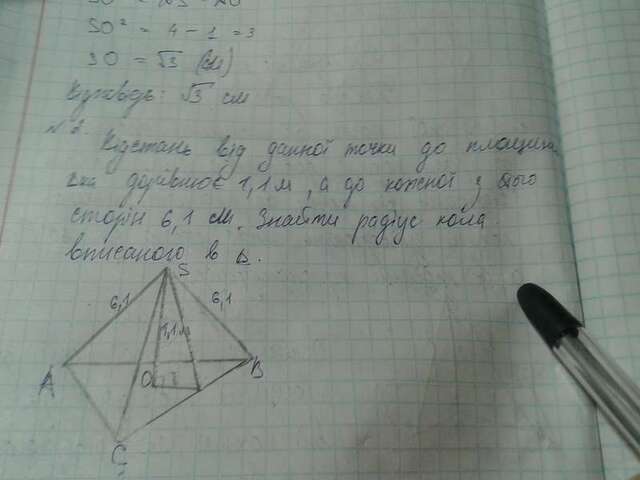 SO² = 4 - 1 = 3
SO = √3 (см)
Відповідь: √3 см
№2.
Відстань від данної точки до площини
дорівнює 1,1 м, а до кожної з його
сторін 6,1 см. Знайти радіус кола
вписаного в Δ.
S
6,1 6,1
1,1 м
A O r B
C